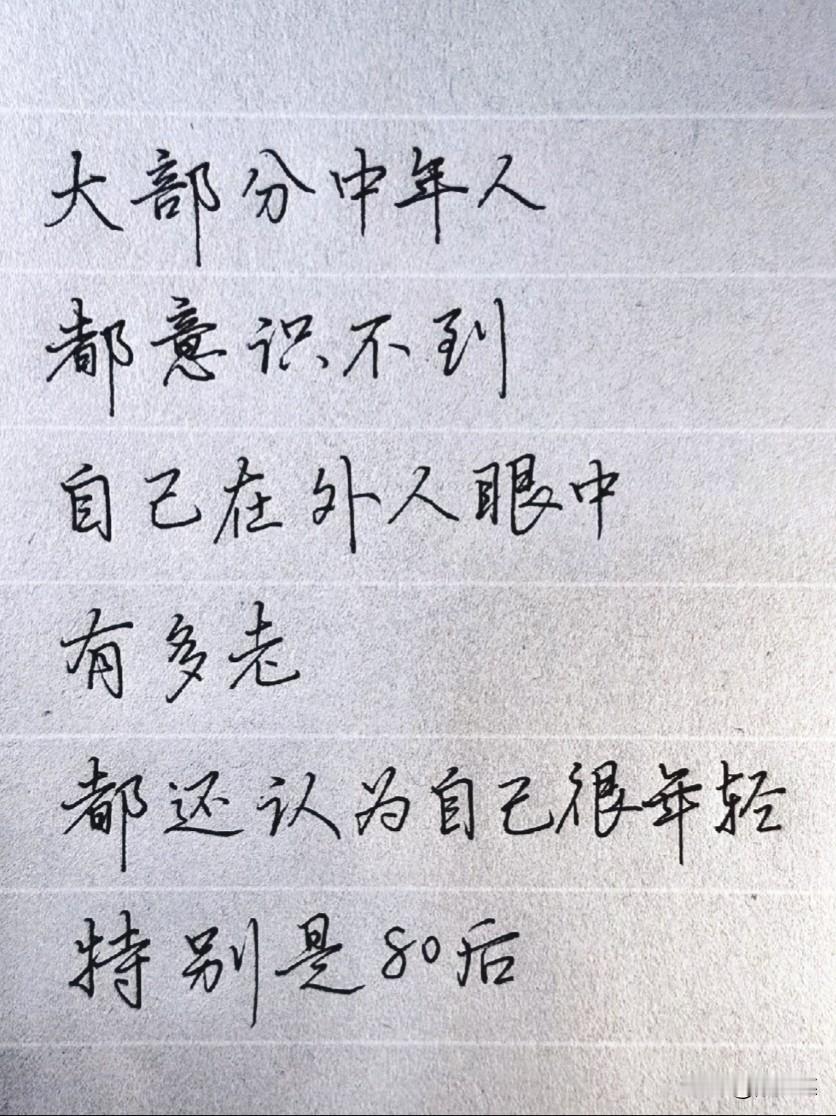 大部分中年人
都意识不到
自己在外人眼中
有多老
都还认为自己很年轻
特别是80后